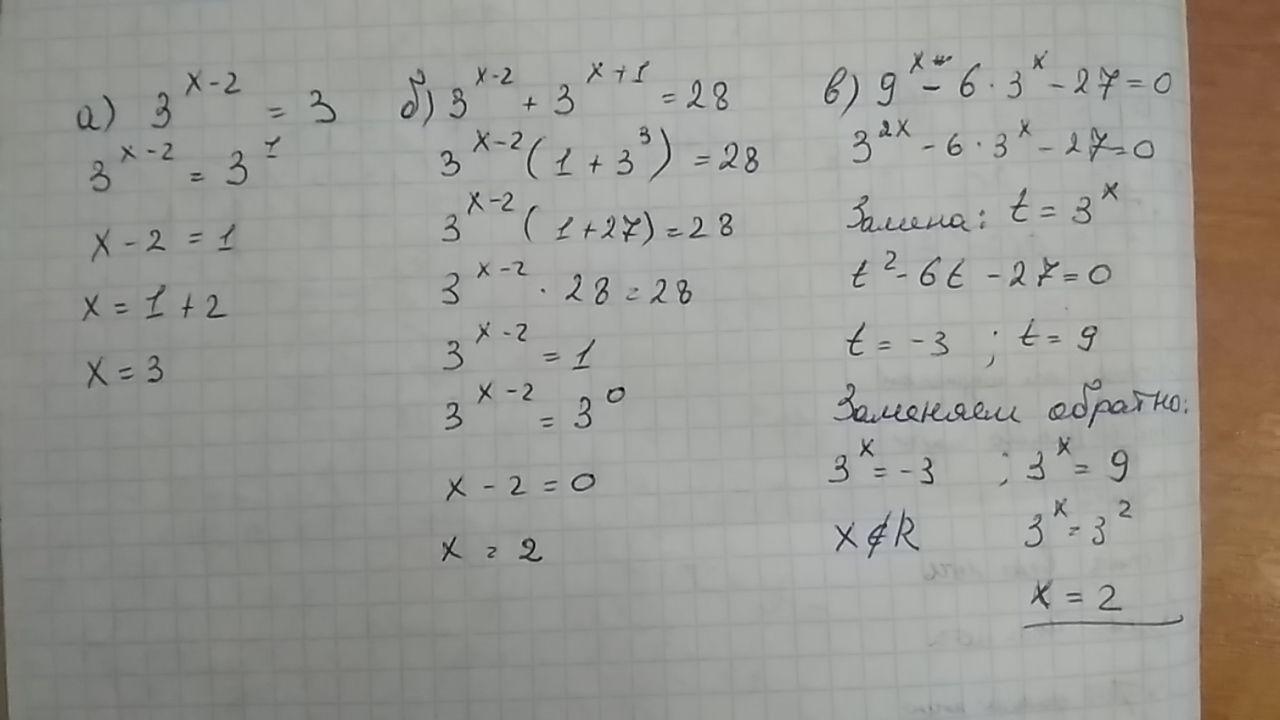 а) 3^{x-2} = 3
3^{x-2} = 3^1
x - 2 = 1
x = 1 + 2
x = 3
б) 3^{x-2} + 3^{x+1} = 28
3^{x-2} (1 + 3^3) = 28
3^{x-2} (1 + 27) = 28
3^{x-2} · 28 = 28
3^{x-2} = 1
3^{x-2} = 3^0
x - 2 = 0
x = 2
в) 9^x - 6 · 3^x - 27 = 0
3^{2x} - 6 · 3^x - 27 = 0
Замена: t = 3^x
t^2 - 6t - 27 = 0
t = -3 ; t = 9
Заменяем обратно:
3^x = -3 ; 3^x = 9
x ∉ R 3^x = 3^2
x = 2